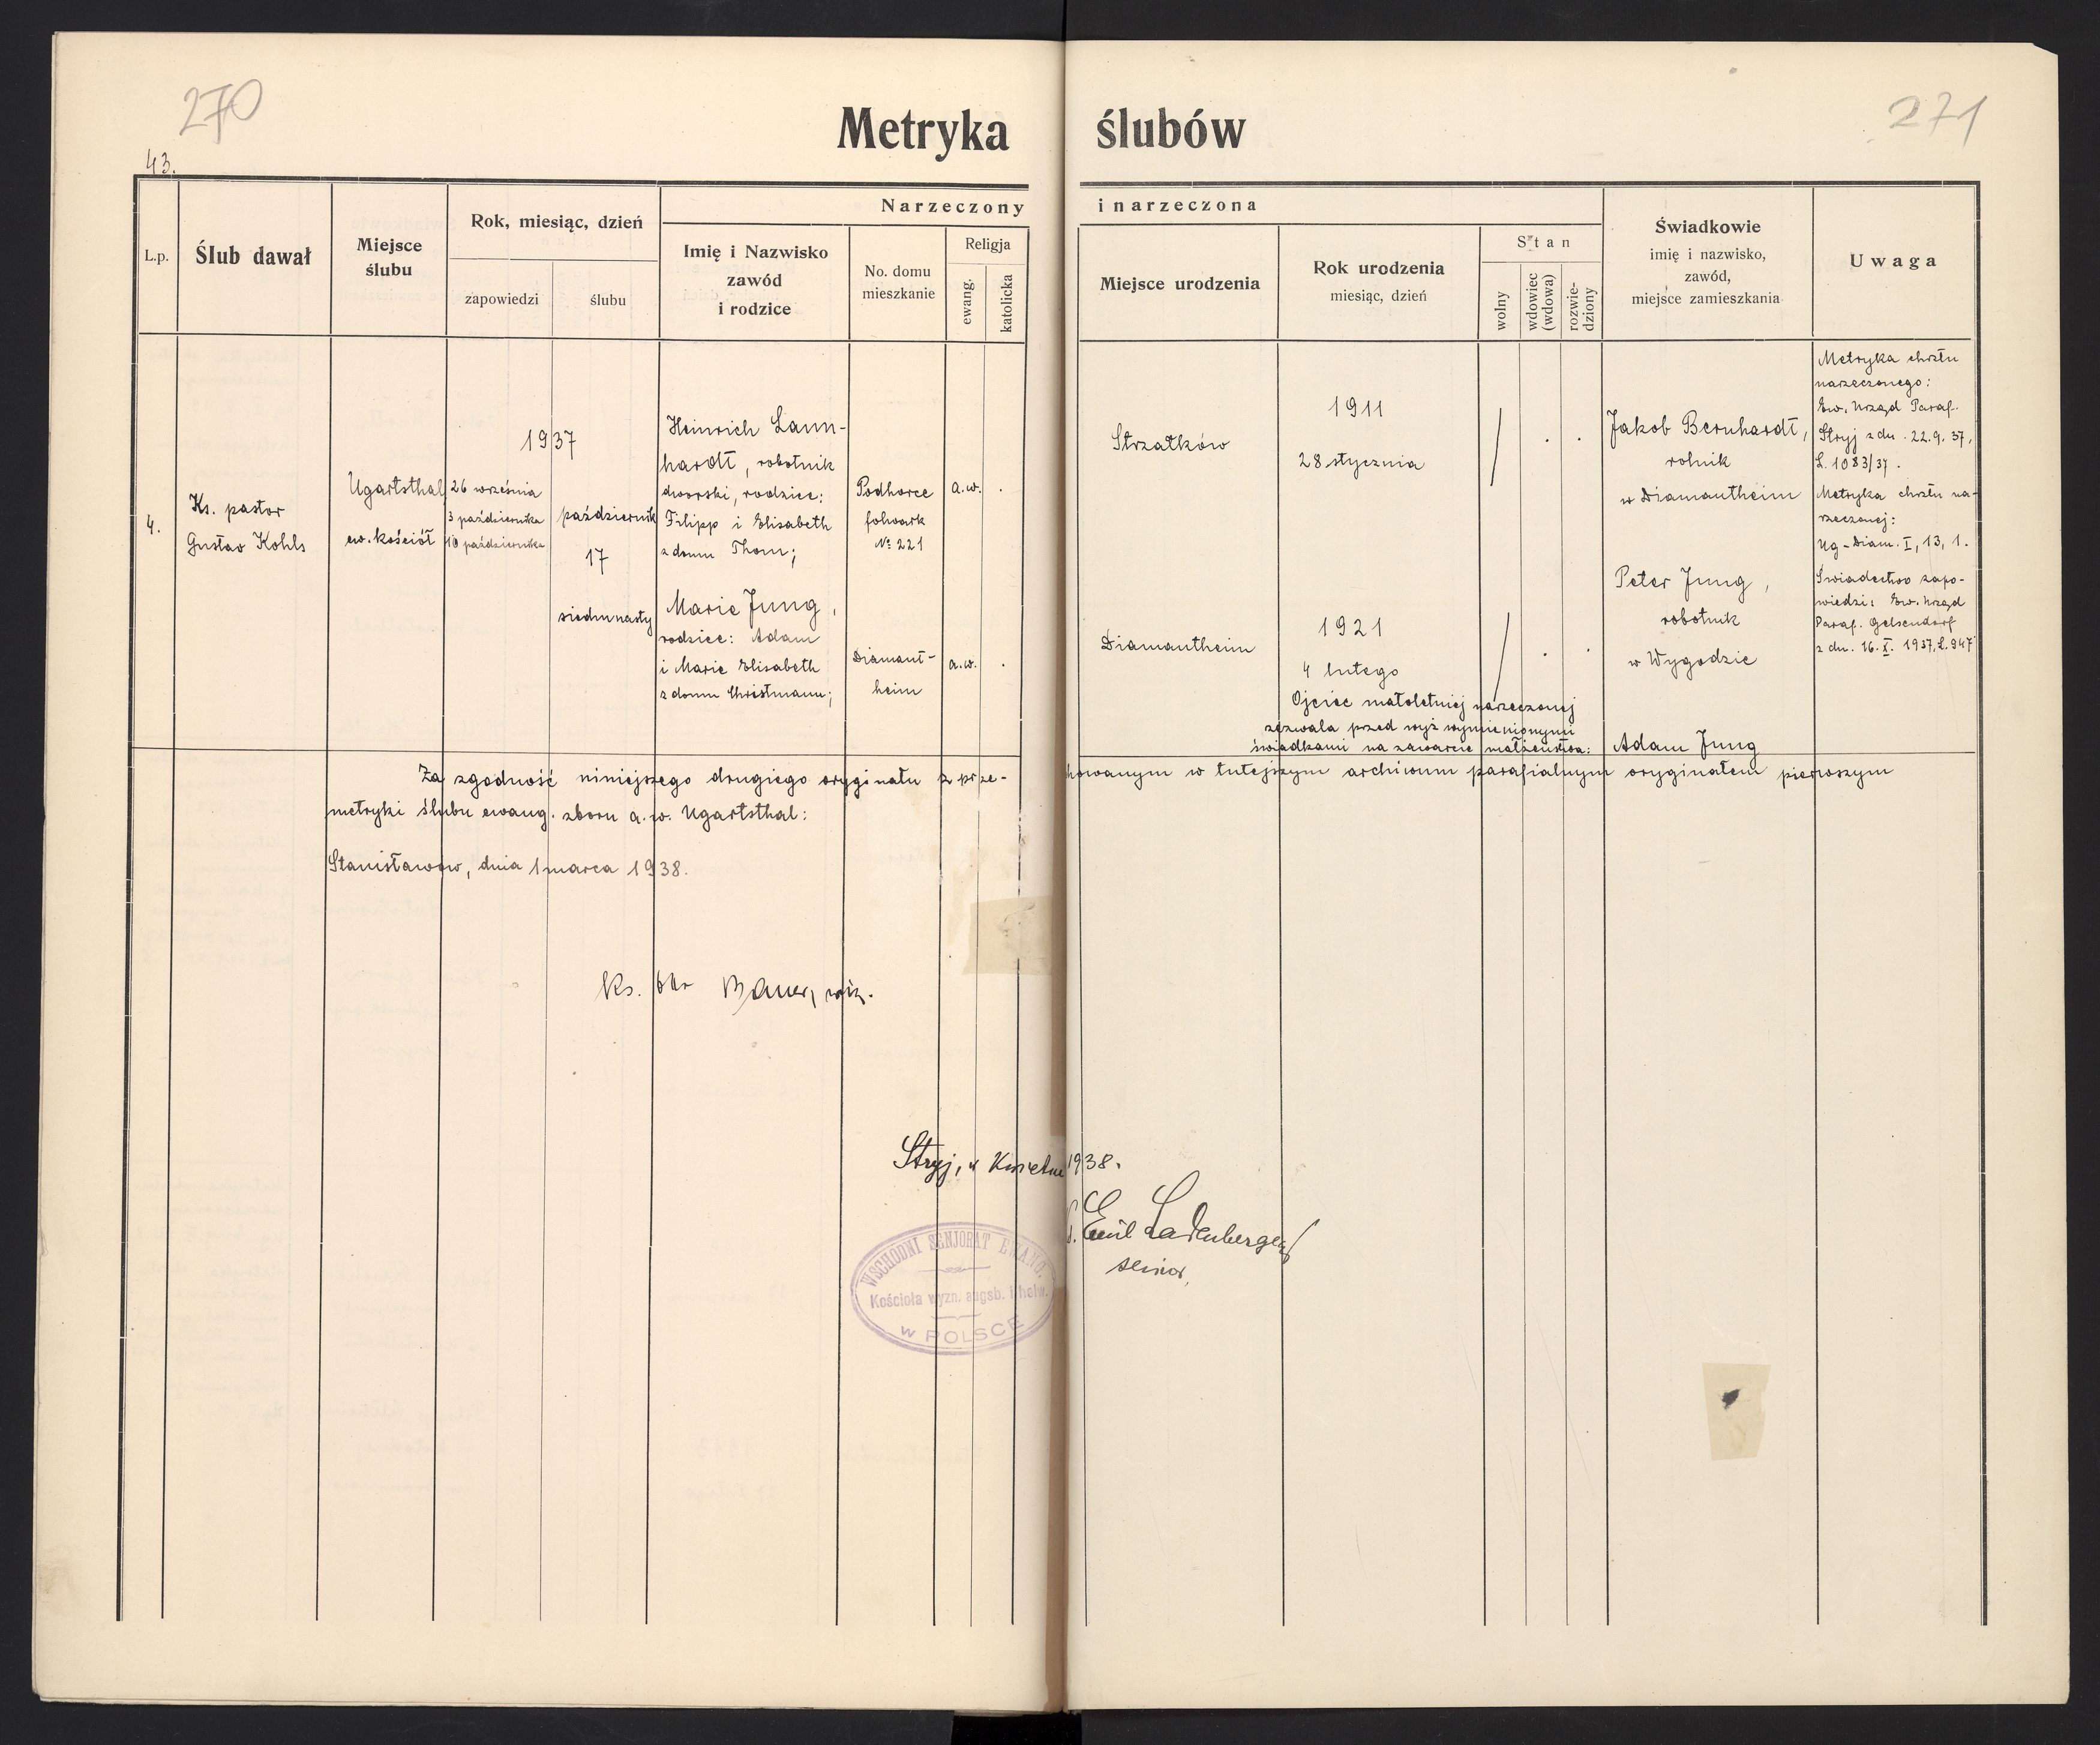 270
271
43.
Metryka ślubów
L.p.
Ślub dawał
Miejsce
ślubu
Rok, miesiąc, dzień
zapowiedzi
ślubu
Narzeczony i narzeczona
Imię i Nazwisko
zawód
i rodzice
No. domu
mieszkanie
Religja
ewang.
katolicka
Miejsce urodzenia
Rok urodzenia
miesiąc, dzień
Stan
wolny
wdowiec
(wdowa)
rozwie-
dziony
Świadkowie
imię i nazwisko,
zawód,
miejsce zamieszkania
Uwaga
4.
Ks. pastor
Gustav Kohls
Ugartsthal
ew. kościół
1937
26 września
3 października
10 października
październik
17
siedmnasty
Heinrich Laun-
hardt, robotnik
dworski, rodzice:
Filipp i Elisabeth
z domu Thom;
Marie Jung,
rodzice: Adam
i Marie Elisabeth
z domu Christmann;
Podhorce
folwark
№ 221
Diamant-
heim
a.w. .
a.w. .
Strzałków
Diamantheim
1911
28 stycznia
1921
4 lutego
Ojciec małoletniej narzeczonej
zezwala przed wyż wymienionymi
świadkami na zawarcie małżeństwa:
Jakob Bernhardt,
rolnik
w Diamantheim
Peter Jung,
robotnik
w Wygodzie
Adam Jung
Metryka chrztu
narzeczonego:
Ew. Urząd Paraf.
Stryj z dn. 22.9.37,
L. 1083/37.
Metryka chrztu na-
rzeczonej:
Ug-Diam. I, 13, 1.
Świadectwo zapo-
wiedzi: Ew. Urząd
Paraf. Gelsendorf
z dn. 16.X. 1937, L. 947
Za zgodność niniejszego drugiego oryginału z prze-howanym w tutejszym archiwum parafialnym oryginałem pierwszym
metryki ślubu ewang. zboru a.w. Ugartsthal:
Stanisławów, dnia 1 marca 1938.
Ks. Bauer, wik.
Stryj, 4 Kwietnia 1938.
Emil Ladenberger
senior,
WSCHODNI SENJORAT EWANG.
Kościoła wyzn. augsb. i helw.
w POLSCE